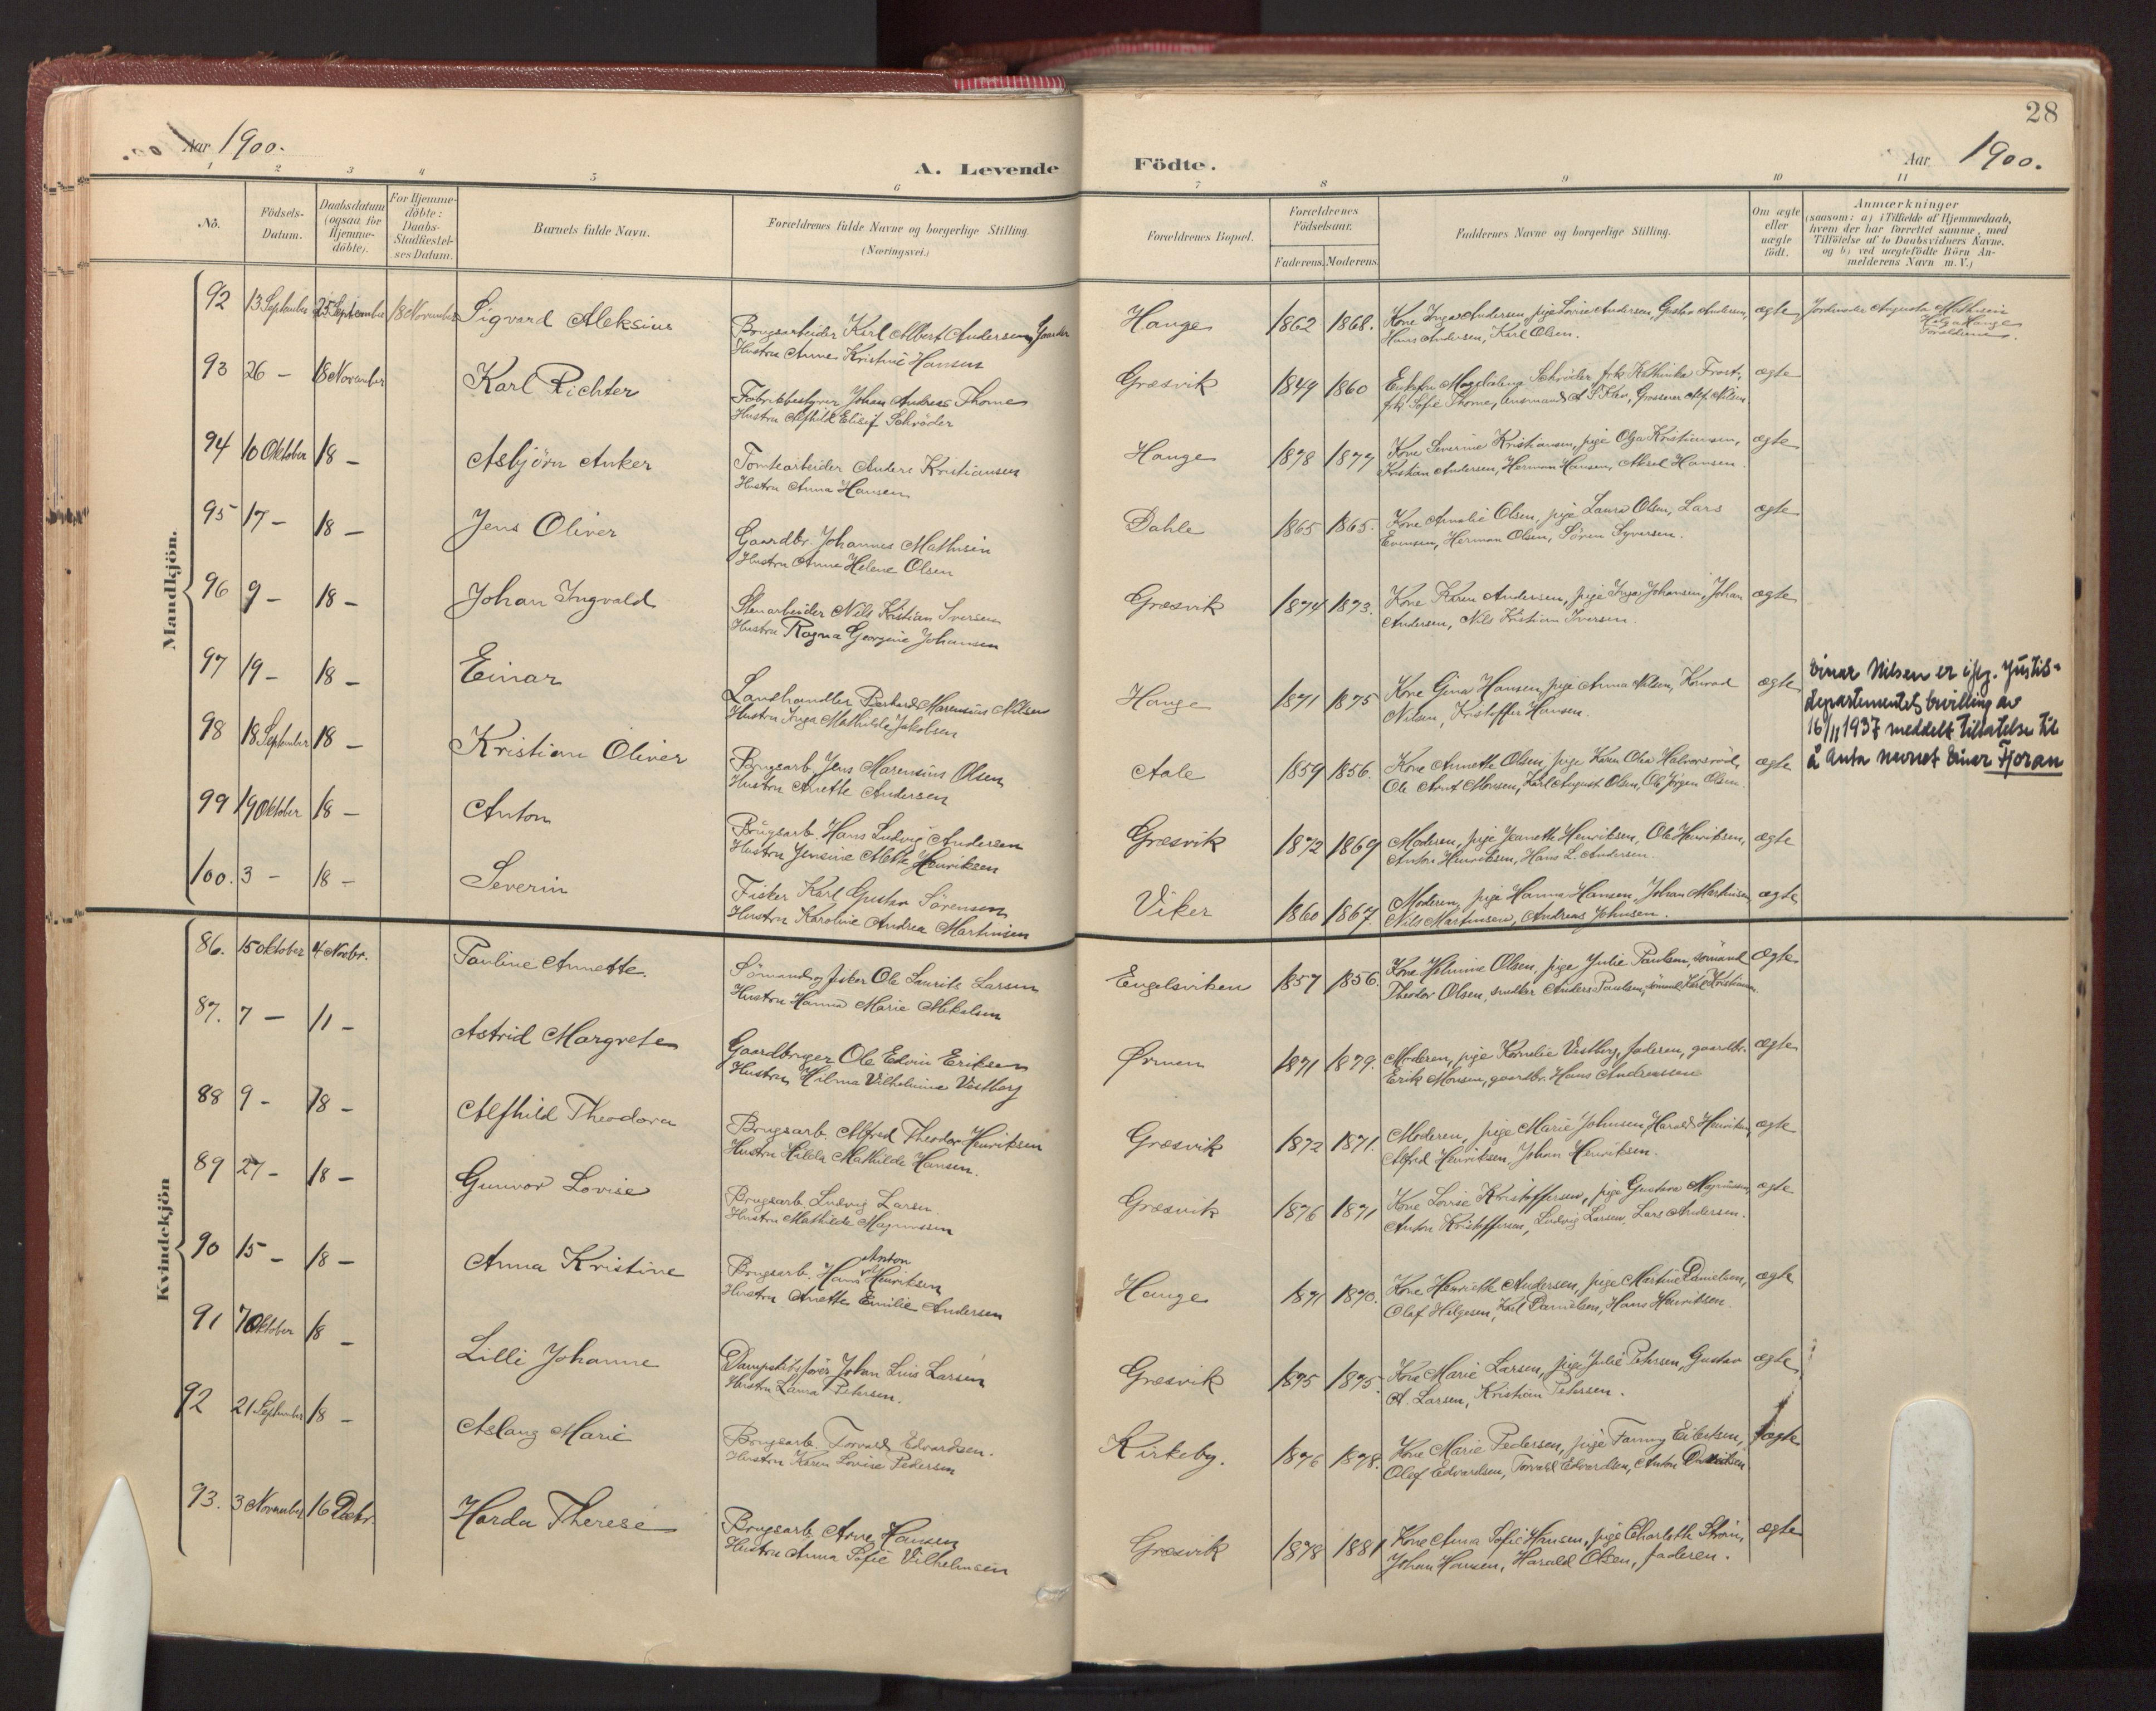 28
Aar 1900.
A. Levende Födte.
Aar 1900.
1 2 3 4 5 6 7 8 9 10 11
No.
Födsels-Datum.
Daabsdatum (ogsaa for Hjemme-döbte).
For Hjemme-döbte: Daabs-Stadfæstel-ses Datum.
Barnets fulde Navn.
Forældrenes fulde Navne og borgerlige Stilling.
(Næringsvei.)
Forældrenes Bopæl.
Forældrenes Födselsaar.
Faderens. Moderens.
Faddernes Navne og borgerlige Stilling.
Om ægte eller uægte födt.
Anmærkninger
(saasom: a) i Tilfælde af Hjemmedaab,
hvem der har forrettet samme, med
Tilföielse af to Daabsvidners Navne.
og b) ved uægtefödte Börn An-
melderens Navn m. V.)
Mandkjön.
92 13 September 25 September 18 November Sigvard Aleksius
Brugsarbeider Karl Albert Andersen
Hustru Anne Kristine Hansen
Hauge 1862 1868. Kone Inga Andersen, pige Lovise Andersen, Gustav Andersen, ægte Jordmoder Augusta Mathisen
Hans Andersen, Karl Olsen. Helga Hauge
Forældrene.
93 26 – 18 November Karl Richter
Fabrikbestyrer Johan Andreas Thorne
Hustru Alfhild Elisif Schröder
Græsvik 1849 1860 Enkefru Magdalena Schröder, frk Kathinka Frost, ægte
frk Sofie Thorne, Grosserer Alf Nilsen
94 10 Oktober 18 – Asbjörn Anker
Tomtearbeider Anders Kristiansen
Hustru Anna Hansen
Hauge 1878 1877 Kone Severine Kristiansen, pige Olga Kristiansen, ægte
Kristian Andersen, Herman Hansen, Aksel Hansen.
95 17 – 18 – Jens Oliver
Gaardbr. Johannes Mathisen
Hustru Anne Helene Olsen
Dahle 1865 1865. Kone Amalie Olsen, pige Laura Olsen, Lars ægte
Evensen, Herman Olsen, Sören Syversen.
96 9 – 18 – Johan Ingvald
Stenarbeider Nils Kristian Iversen
Hustru Ragna Georgine Johansen
Græsvik 1874 1873. Kone Karen Andersen, pige Inga Johansen, Johan ægte
Andersen, Nils Kristian Iversen.
97 19 – 18 – Einar
Landhandler Marensius Nilsen
Hustru Inga Mathilde Jakobsen
Hauge 1871 1875 Kone Gina Hansen, pige Anna Nilsen, Konrad ægte
Nilsen, Kristoffer Hansen.
Einar Nilsen er iflg. Justis-
departementets bevilling av
16/11 1937 meddelt tillatelse til
å anta navnet Einar Fjoran
98 18 September 18 – Kristian Oliver
Brugsarb. Jens Marensius Olsen
Hustru Anette Andersen
Aale 1859 1856. Kone Annette Olsen, pige Karen Olea Halvorsröd, ægte
Ole Arnt Monsen, Karl August Olsen, Ole Jörgen Olsen.
99 19 Oktober 18 – Anton
Brugsarb. Hans Ludvig Andersen
Hustru Jensine Alette Henriksen
Græsvik 1872 1869 Moderen, pige Jeanette Henriksen, Ole Henriksen, ægte
Anton Henriksen, Hans L. Andersen.
100. 3 – 18 – Severin
Fisker Karl Gustav Sörensen
Hustru Karoline Andrea Martinsen
Viker 1860 1867. Moderen, pige Hanna Hansen, Johan Martinsen ægte
Nils Martinsen, Andreas Johnsen.
Kvindekjön
86. 15 Oktober 4 Novbr. Pauline Annette.
Sömand og fisker Ole Lauritz Larsen
Hustru Hanna Marie Mikelsen
Engelsviken 1857 1856. Kone Helmine Olsen, pige Julie Paulsen, sömand ægte
Theodor Olsen, snedker Anders Paulsen, sömand Karl Kristiansen.
87. 7 – 11 – Astrid Margrete
Gaardbruger Ole Edvin Eriksen
Hustru Hilma Vilhelmine Vestberg
Ørmen 1871 1879. Moderen, pige Kornelie Vestberg, faderen, gaardbr. ægte
Erik Monsen, gaardbr. Hans Andreassen
88 9 – 18 – Alfhild Theodora
Brugsarb. Alfred Theodor Henriksen
Hustru Hilda Mathilde Hansen.
Græsvik 1872 1871. Moderen, pige Marie Johnsen, Harald Henriksen, ægte
Alfred Henriksen, Johan Henriksen.
89 27 – 18 – Gunvor Lovise
Brugsarb. Ludvig Larsen.
Hustru Mathilde Magnussen
Græsvik 1876 1871 Kone Lovise Kristoffersen, pige Gustava Magnussen, ægte
Anton Kristoffersen, Ludvig Larsen, Lars Andersen.
90 15 – 18 – Anna Kristine
Brugsarb. Hans Anton Henriksen
Hustru Anette Emilie Andersen
Hauge 1871 1870. Kone Henriette Andersen, pige Martine Danielsen, ægte
Olaf Helgesen, Karl Danielsen, Hans Henriksen.
91 7 Oktober 18 – Lilli Johanne
Dampskibsförer Johan Linus Larsen
Hustru Laura Pehrsen.
Græsvik 1875 1875. Kone Marie Larsen, pige Julie Pehrsen, Gustav ægte
A. Larsen, Kristian Pehrsen.
92 21 September 18 – Aslaug Marie
Brugsarb. Torvald Edvardsen.
Hustru Karen Lovise Pedersen
Kirkeby. 1876 1878. Kone Marie Pedersen, pige Fanny Eilertsen, ægte
Olaf Edvardsen, Torvald Edvardsen, Anton
93. 3 November 16 Decbr. Harda Therese
Brugsarb. Arne Hansen
Hustru Anna Sofie Vilhelmsen
Græsvik 1878 1881 Kone Anna Sofie Hansen, pige Charlotte Ström, ægte
Johan Hansen, Harald Olsen, faderen.